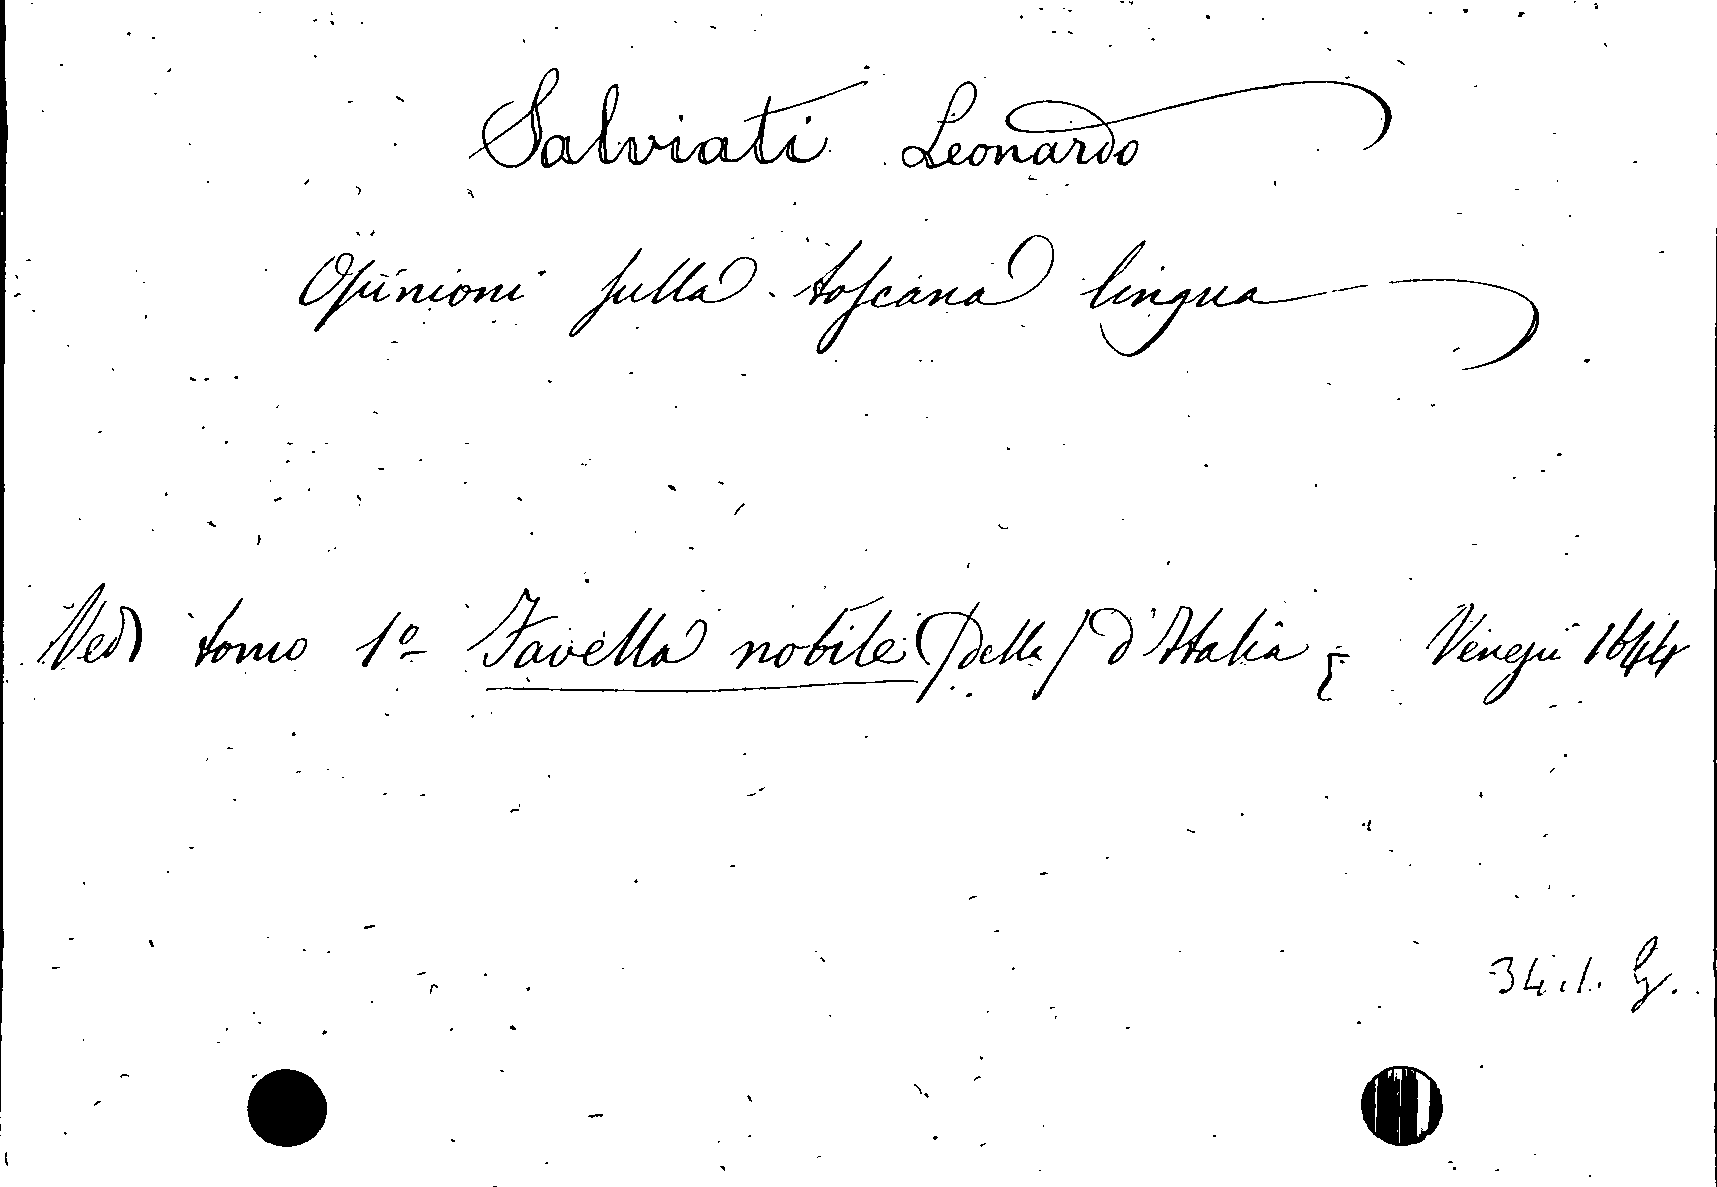 Salviati Leonardo
Opinioni sulla toscana lingua
Vedi tomo 1º Favella nobile (della) d'Italia; Venezia 1644
34.1. G.